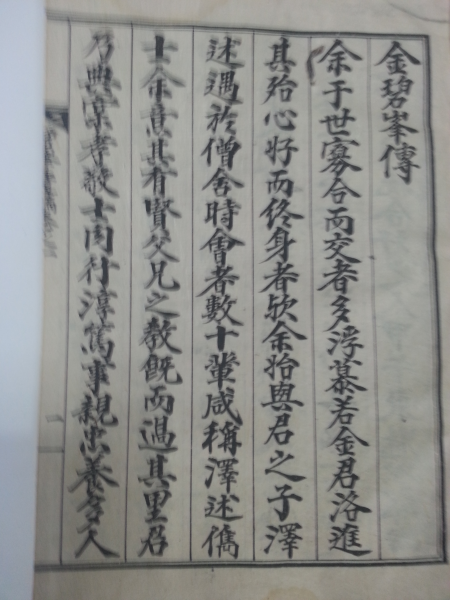 金碧峯傳
余于世寡合而交者多浮慕若金君洛進
其殆心好而終身者欤余始與君之子澤
述遇於僧舍時會者數十輩咸稱澤述儁
士余意其有賢父兄之教旣而過其里君
乃與崇孝敬士因付淳篤事親忠養多人